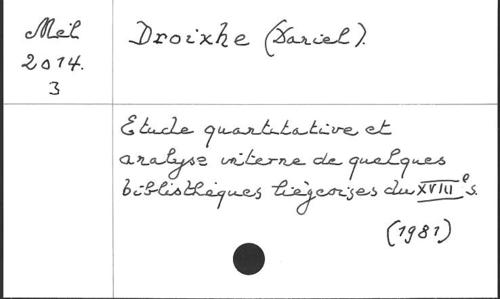 Mél
2014.
3
Droixhe (Daniel).
Etude quantitative et
analyse interne de quelques
bibliothèques liégeoises du XVIIIe s.
(1981)